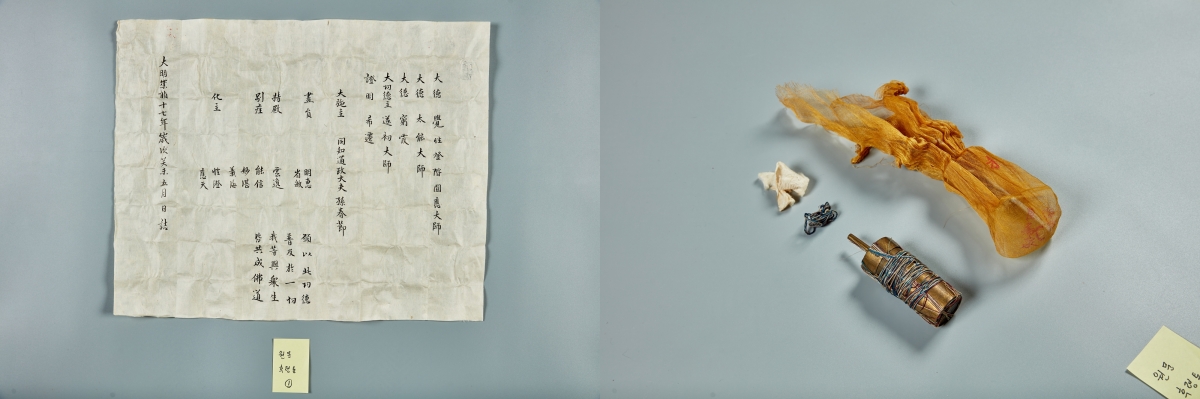 大德 覺性登階圓應大師
大德 太能大師
大德 窮霞
大功德主 道初大師
證明 希遷
大施主 同知通政大夫 孫春節
畫員 明惠
省敏
持殿 雲遠
別座 能信
妙湛
義海
化主 性澄
應天
願以此功德
普及於一切
我等與衆生
皆共成佛道
大明崇禎十七年歲次癸未五月 日 誌
후령통
①